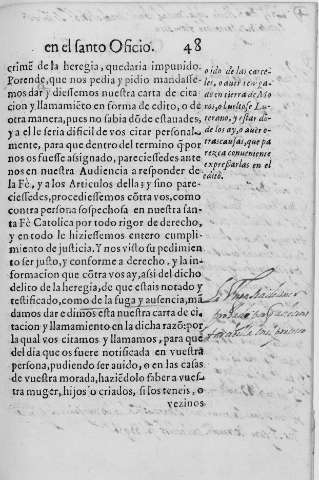 en el santo Oficio. 48
crimē de la heregia, quedaria impunido.
Porende, que nos pedia y pidio mandasse-
mos dar y diessemos nuestra carta de cita
cion y llamamiēto en forma de edito, o de
otra manera, pues no sabia dōde estauades,
y a el le seria dificil de vos citar personal-
mente, para que dentro del termino q̄ por
nos os fuesse assignado, pareciessedes ante
nos en nuestra Audiencia a responder de
la Fè, y a los Articulos della: y sino pare-
ciessedes, procediessemos cōtra vos, como
contra persona sospechosa en nuestra san-
ta Fè Catolica por todo rigor de derecho,
y en todo le hiziessemos entero cumpli-
miento de justicia. Y nos visto su pedimien
to ser justo, y conforme a derecho, y la in-
formacion que cōtra vos ay, assi del dicho
delito de la heregia, de que estais notado y
testificado, como de la fuga y ausencia, mā
damos dar e dimos esta nuestra carta de ci-
tacion y llamamiento en la dicha razō: por
la qual vos citamos y llamamos, para que
del dia que os fuere notificada en vuestra
persona, pudiendo ser auido, o en las casas
de vuestra morada, haziēdolo saber a vues-
tra muger, hijos o criados, si los teneis, o
vezinos
o ido de las carce-
les, o auer renegado
en tierra de Mo
ros, o bueltose Lu-
terano, y estar dō-
de los ay, o auer o-
tras causas, que pa
rezca conueniente
expressarlas en el
edito.